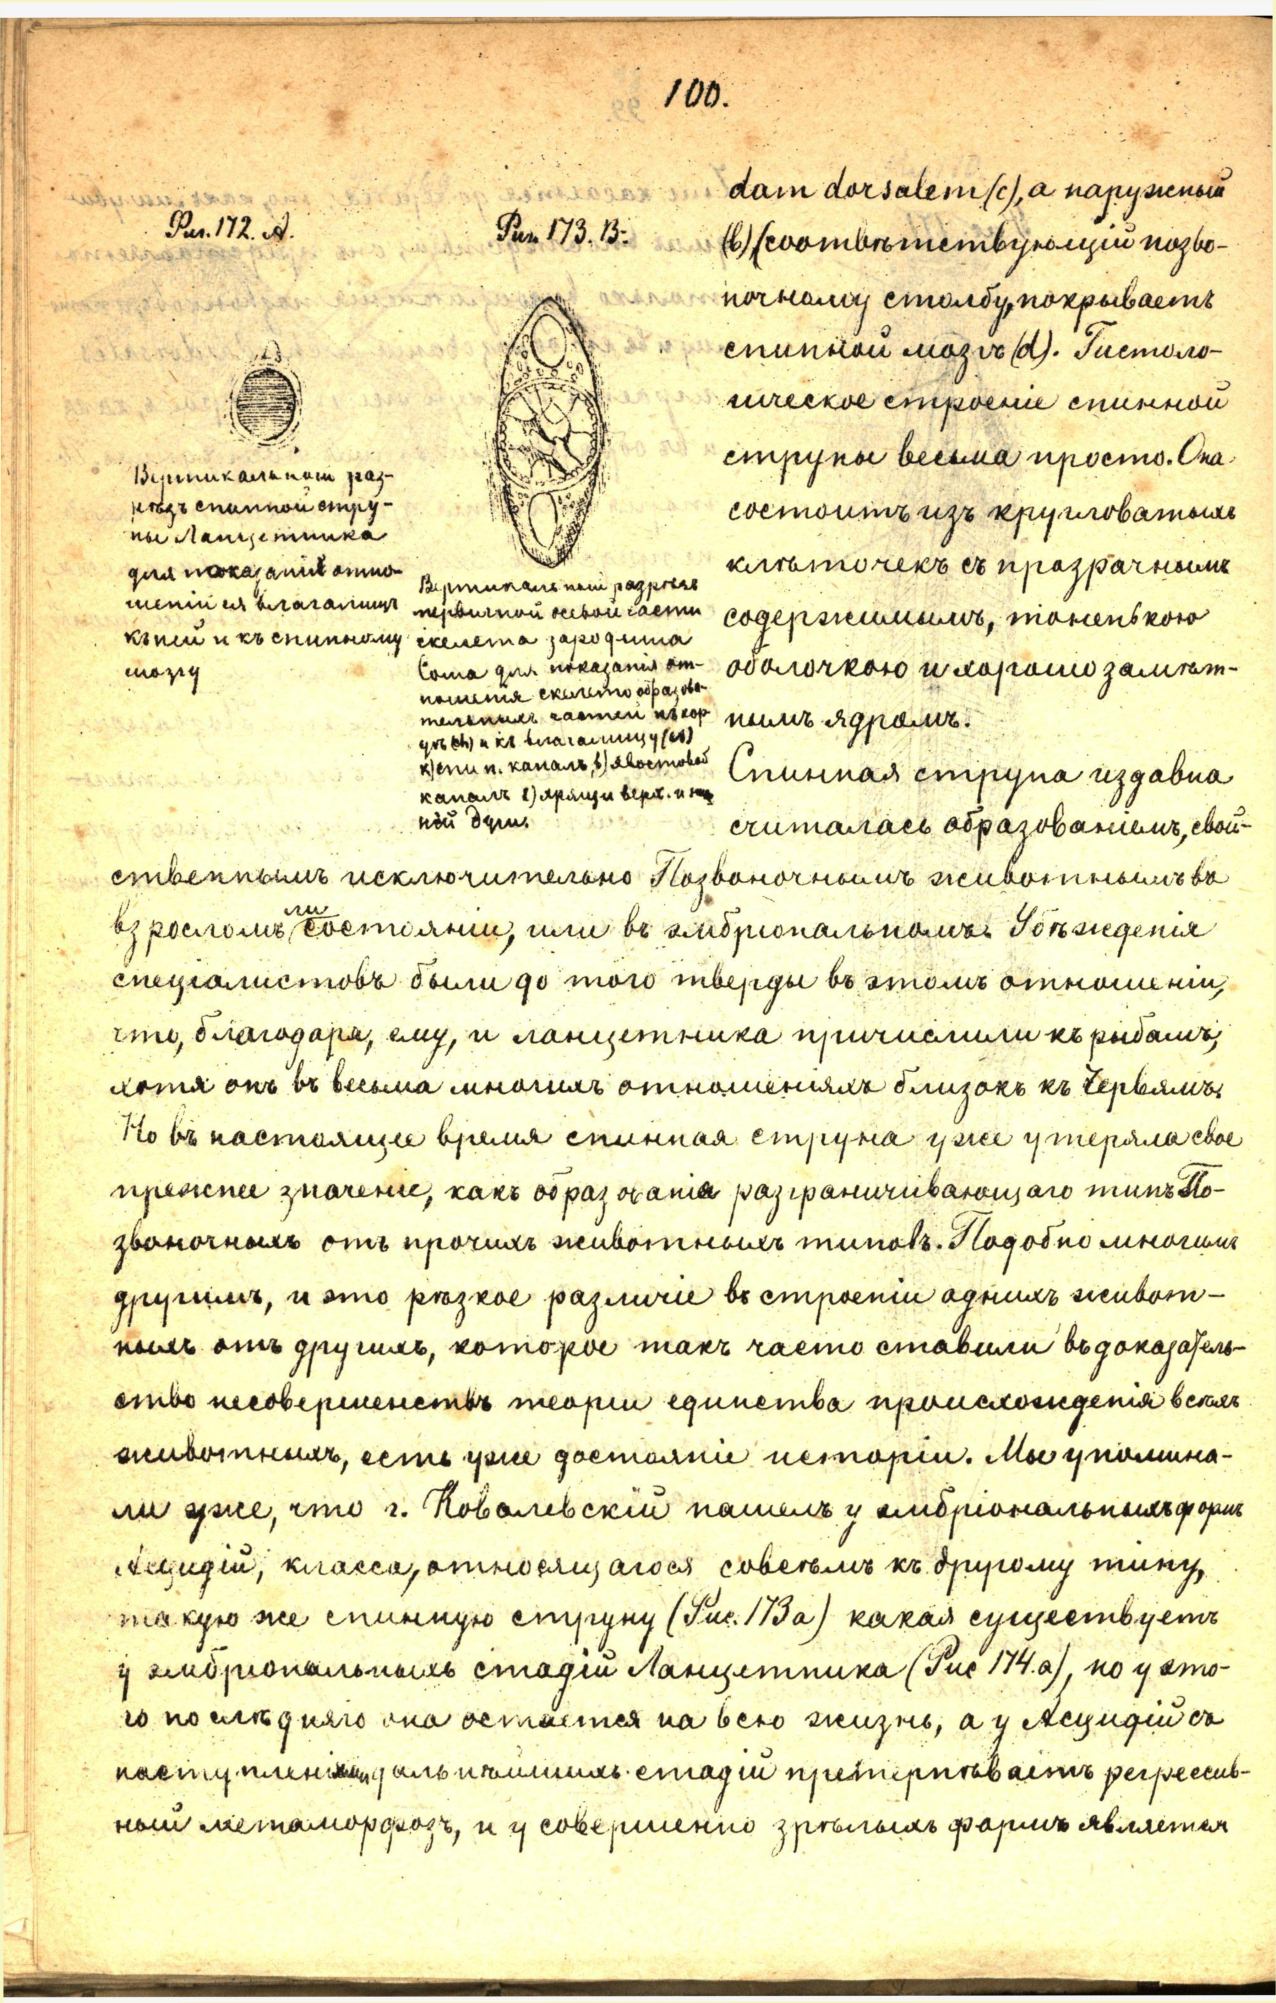 100.
Рис. 172. А.
Вертикальный раз-
рѣзъ спинной стру-
ны Ланцетника
для показанія отно-
шеній ея влагалищъ
къ ней и къ спинному
мозгу
Рис. 173. В.
Вертикальный разрѣзъ
первичной осевой части
скелета зародыша
Сома для показанія от-
ношенія скелето образова-
тельныхъ частей къ хор-
дѣ (ch) и къ влагалищу (cs)
к) спин. каналъ, b) хвостовой
каналъ l) хрящи верх. и ниж
ной дуги.
dam dorsalem (c), а наружный
(b) (соотвѣтствующій позво-
ночному столбу, покрываетъ
спинной мозгъ (d). Гистоло-
гическое строеніе спинной
струны весьма просто. Она
состоитъ изъ кругловатыхъ
клѣточекъ съ прозрачнымъ
содержимымъ, тоненькою
оболочкою и хорошо замѣт-
нымъ ядромъ.
Спинная струна издавна
считалась образованіемъ, свой-
ственнымъ исключительно Позвоночнымъ животнымъ въ
взросломъ ли состояніи, или въ эмбріональномъ. Убѣжденія
спеціалистовъ были до того тверды въ этомъ отношеніи,
что, благодаря, ему, и ланцетника причислили къ рыбамъ,
хотя онъ въ весьма многихъ отношеніяхъ близокъ къ Червямъ.
Но въ настоящее время спинная струна уже утеряла свое
прежнее значеніе, какъ образованія разграничивающаго типъ По-
звоночныхъ отъ прочихъ животныхъ типовъ. Подобно многимъ
другимъ, и это рѣзкое различіе въ строеніи однихъ живот-
ныхъ отъ другихъ, которое такъ часто ставили въ доказатель-
ство несовершенствъ теоріи единства происхожденія всѣхъ
животныхъ, есть уже достояніе исторіи. Мы упомина-
ли уже, что г. Ковалевскій нашелъ у эмбріональныхъ формъ
Асцидій, класса, относящагося совсѣмъ къ другому типу,
такую же спинную струну (Рис. 173 а) какая существуетъ
у эмбріональныхъ стадій Ланцетника (Рис 174. а), но у это-
го послѣдняго она остается на всю жизнь, а у Асцидій съ
наступленіемъ дальнѣйшихъ стадій претерпѣваетъ регрессив-
ный метаморфозъ, и у совершенно зрѣлыхъ формъ является